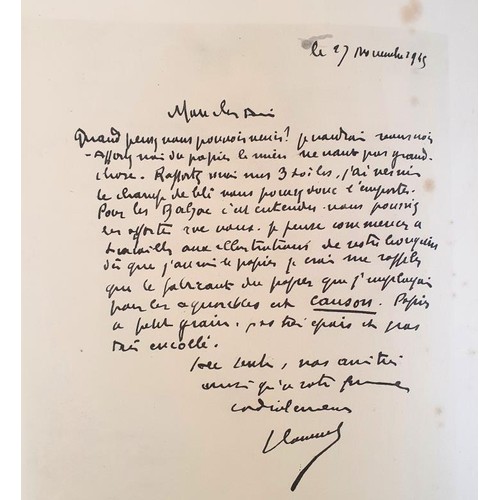 le 27 Novembre 1945
Mon cher Ami
Quand pensez vous pouvoir venir? je voudrais vous voir
- Apportez moi du papier le mien ne vaut pas grand
chose. Rapportez moi mes 3 toiles, j'ai verni
le champ de blé vous pouvez donc l'emporter.
Pour les Balzac c'est entendu - vous pouvez
les apporter vous. je pense commencer à
travailler aux illustrations de votre bouquin
dès que j'aurai le papier je crois me rappeler
que le fabricant du papier que j'employais
pour les aquarelles est canson. Papier
à petit grain, pas très épais et pas
très encollé.
vos amitiés
ainsi qu'à votre femme
cordialement